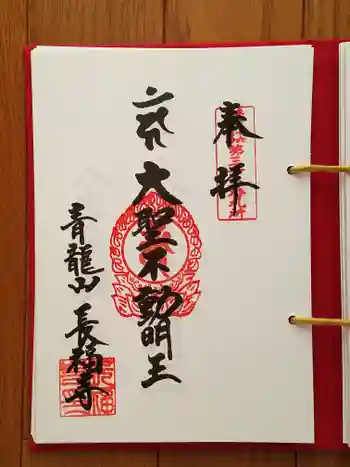 奉拝
大聖不動明王
青龍山 長福寺